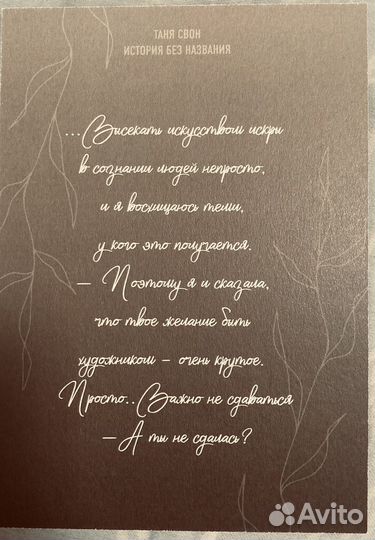 ТАНЯ СВОН
ИСТОРИЯ БЕЗ НАЗВАНИЯ
...Высекать искусством искры
в сознании людей непросто,
и я восхищаюсь теми,
у кого это получается.
— Поэтому я и сказала,
что твое желание быть
художником – очень крутое.
Просто.. Важно не сдаваться
— А ты не сдалась?
Avito